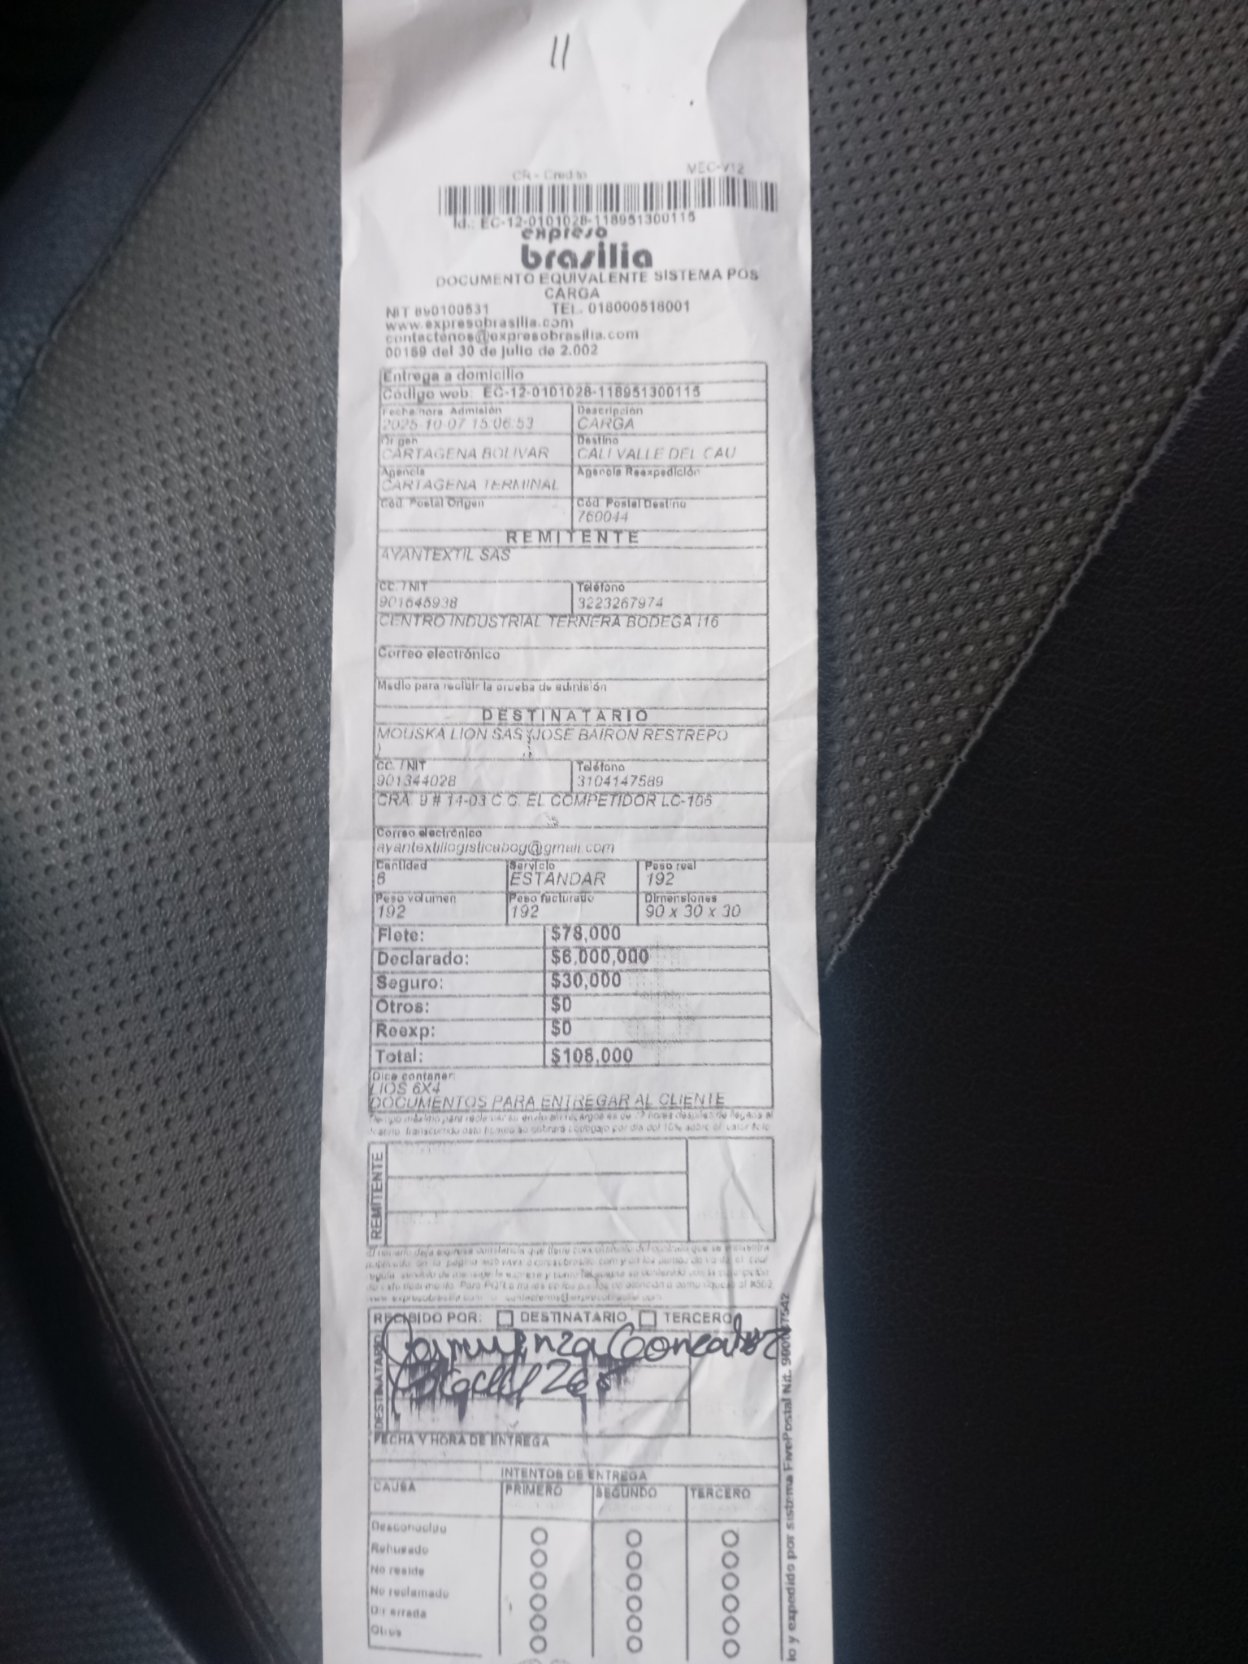 11
CR - Credito MEC-V12
Id.: EC-12-0101028-118951300115
expreso
brasilia
DOCUMENTO EQUIVALENTE SISTEMA POS
CARGA
NIT 890100531 TEL. 018000518001
www.expresobrasilia.com
contactenos@expresobrasilia.com
00189 del 30 de julio de 2.002
Entrega a domicilio
Código web: EC-12-0101028-118951300115
Fecha hora Admisión Descripción
2025-10-07 15:06:53 CARGA
Origen Destino
CARTAGENA BOLIVAR CALI VALLE DEL CAU
Agencia Agencia Reexpedición
CARTAGENA TERMINAL
Cód. Postal Origen Cód. Postal Destino
760044
REMITENTE
AYANTEXTIL SAS
CC. / NIT Teléfono
901646938 3223267974
CENTRO INDUSTRIAL TERNERA BODEGA I16
Correo electrónico
Medio para recibir la prueba de admisión
DESTINATARIO
MOUSKA LION SAS (JOSE BAIRON RESTREPO
)
CC. / NIT Teléfono
901344028 3104147589
CRA. 9 # 14-03 C.C. EL COMPETIDOR LC-106
Correo electrónico
ayantextillogisticabog@gmail.com
Cantidad Servicio Peso real
6 ESTANDAR 192
Peso volumen Peso facturado Dimensiones
192 192 90 x 30 x 30
Flete: $78,000
Declarado: $6,000,000
Seguro: $30,000
Otros: $0
Reexp: $0
Total: $108,000
Dice contener:
LIOS 6X4
DOCUMENTOS PARA ENTREGAR AL CLIENTE
REMITENTE
RECIBIDO POR: DESTINATARIO TERCERO
DESTINATARIO
FECHA Y HORA DE ENTREGA
INTENTOS DE ENTREGA
CAUSA PRIMERO SEGUNDO TERCERO
Desconocido
Rehusado
No reside
No reclamado
Dir errada
Otros
y expedido por sistema FivePostal Nit.